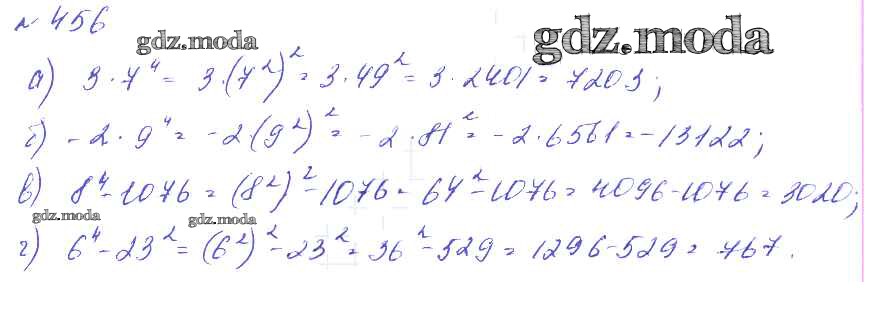 № 456
gdz.moda
gdz.moda
а) 3·7⁴ = 3·(7²)² = 3·49² = 3·2401 = 7203;
б) -2·9⁴ = -2(9²)² = -2·81² = -2·6561 = -13122;
в) 8⁴-1076 = (8²)²-1076 = 64²-1076 = 4096-1076 = 3020;
gdz.moda
gdz.moda
г) 6⁴-23² = (6²)²-23² = 36²-529 = 1296-529 = 767.